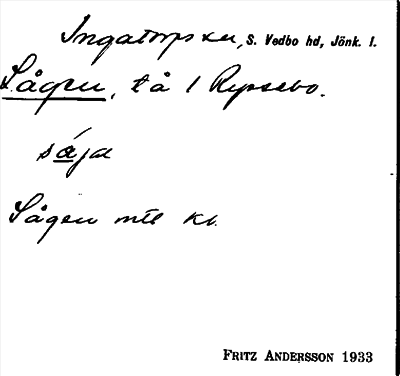 Ingatorps sn, S. Vedbo hd, Jönk. l.
Sågen, tå 1 Rypsebo.
sájα
Sågen mtl kb.
FRITZ ANDERSSON 1933